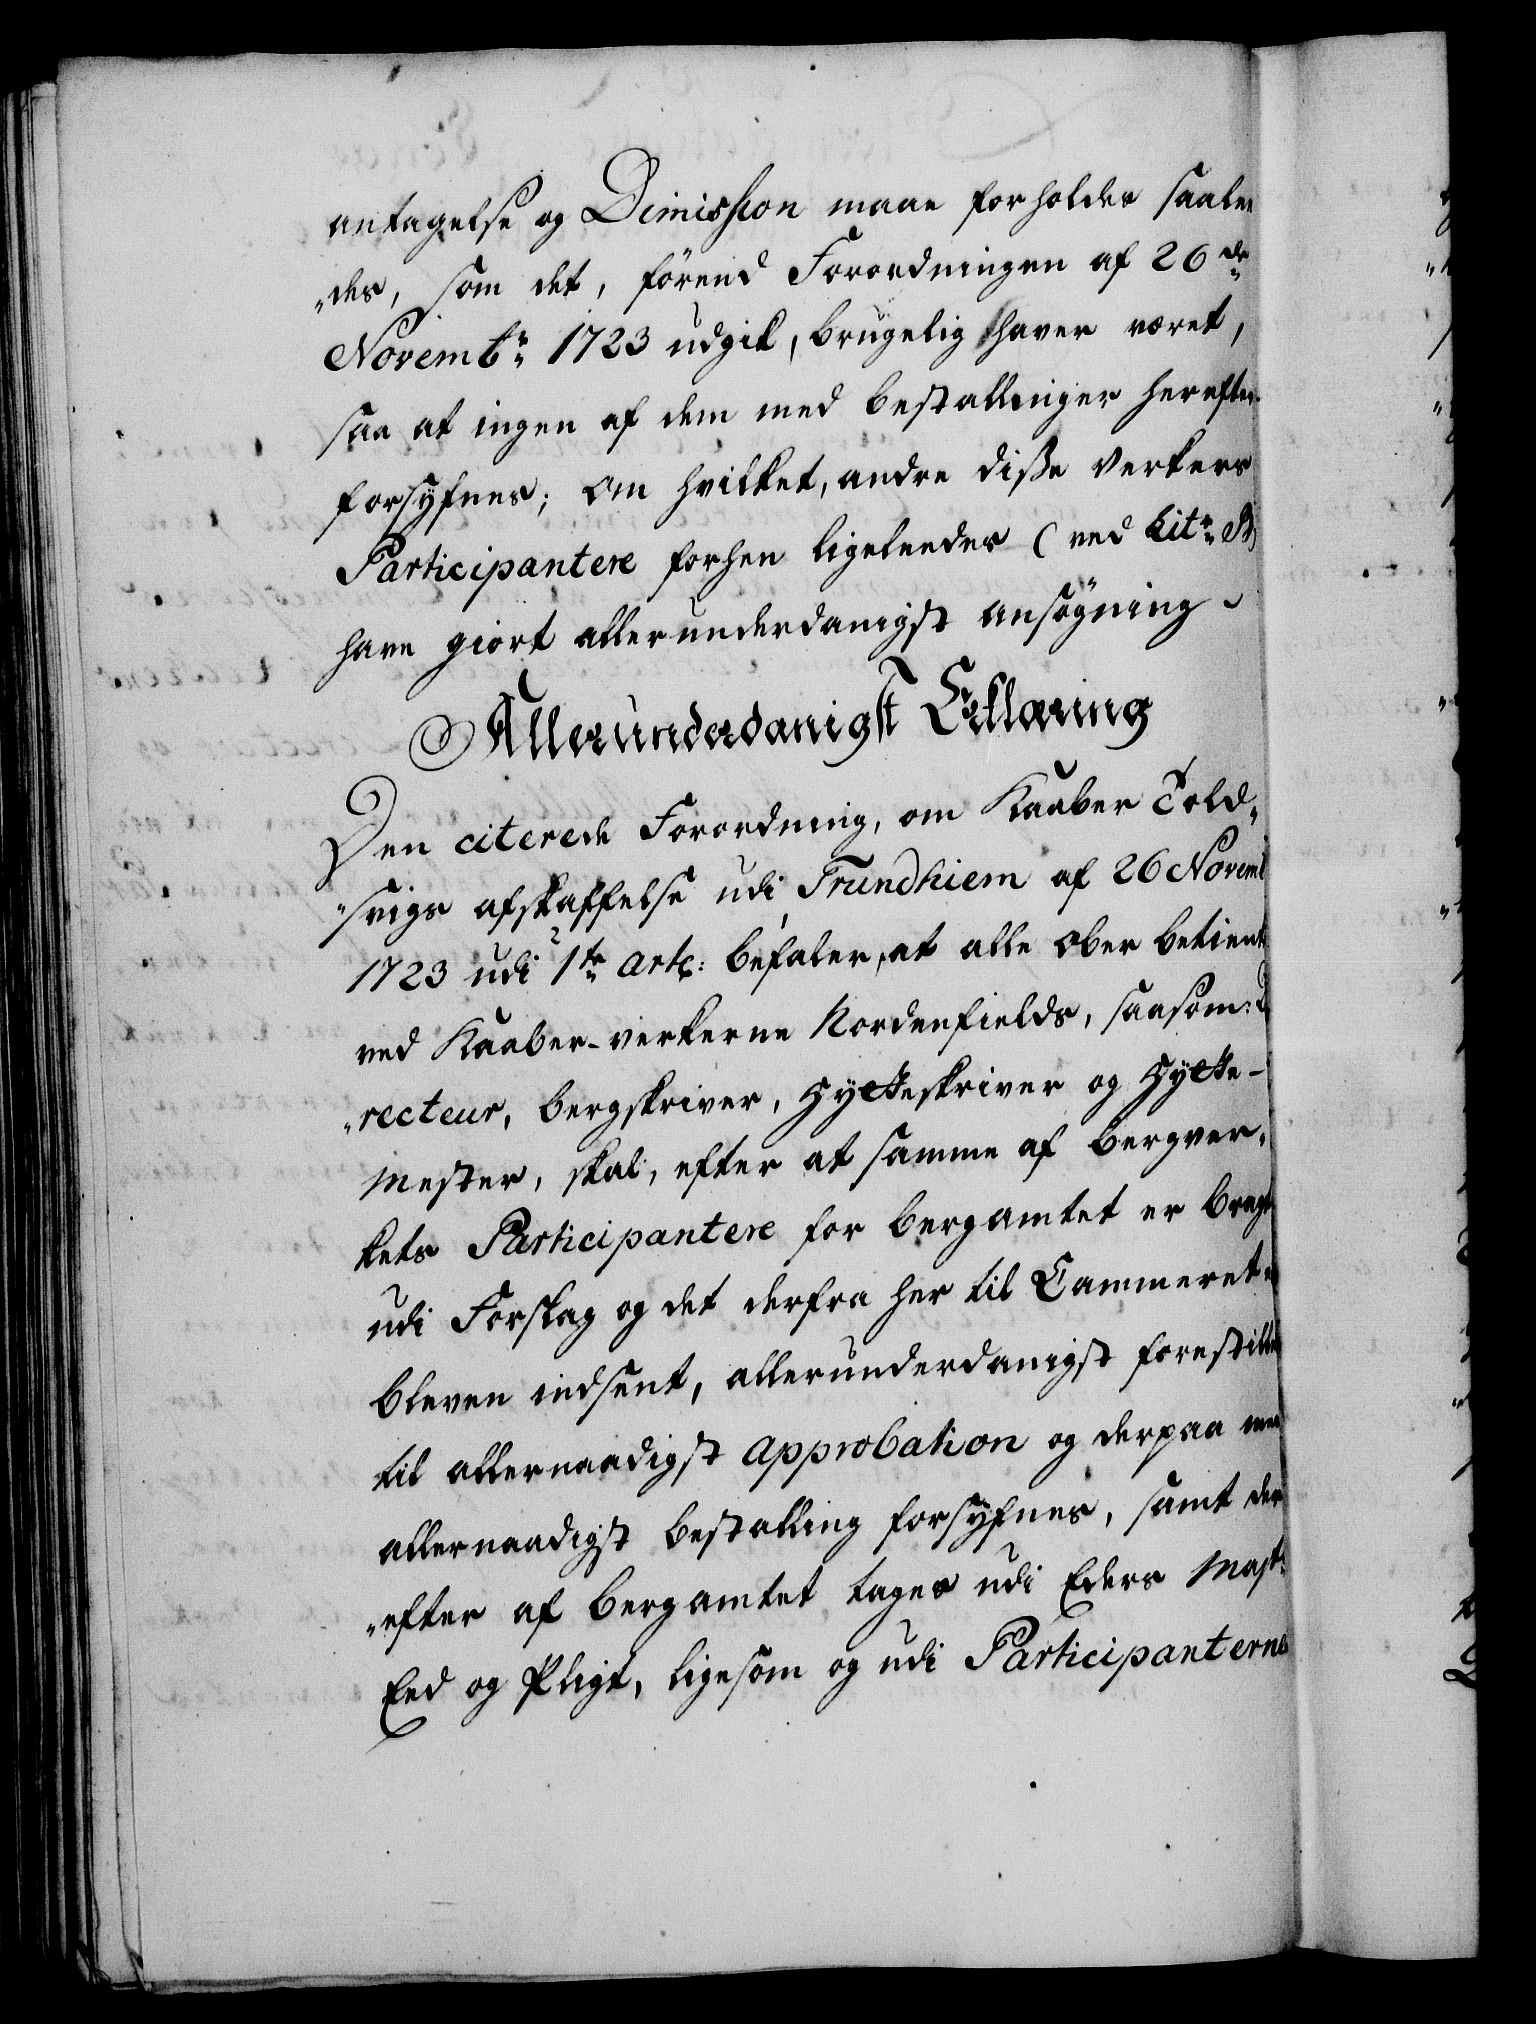 antagelse og Dimission maae forholdes saalee
„des, som det, förend Forordningen af 26de
Novembr 1723 udgik, brugelig haver været,
saa at ingen af dem med bestallinger herefter
forsÿfnes; Om hvilket, andre disse Verkers
Participantere forhen ligeleedes (ved Litr. B)
have giort allerunderdanigst ansögning.
Allerunderdanigst Erklæring
Den citerede Forordning, om Kaaber Told„
„svigs afskaffelse udi Trundhiem af 26 Novemb
1723 udi 1te Artc: befaler, at alle Ober betient
ved Kaaber-verkerne Nordenfields, saasom: Di
„recteur, bergskriver, Hÿtteskriver og Hÿtte-
Mester, skal, efter at samme af bergver„
kets Participantere for bergamtet er bragt
udi Forslag og det derfra her til Cammeret er
bleven indsent, allerunderdanigst forestilles
til allernaadigst Approbation og derpaa med
allernaadigst bestalling forsÿfnes, samt der
„efter af bergamtet tages udi Eders Majts:
Eed og Pligt, ligesom og udi Participanternes